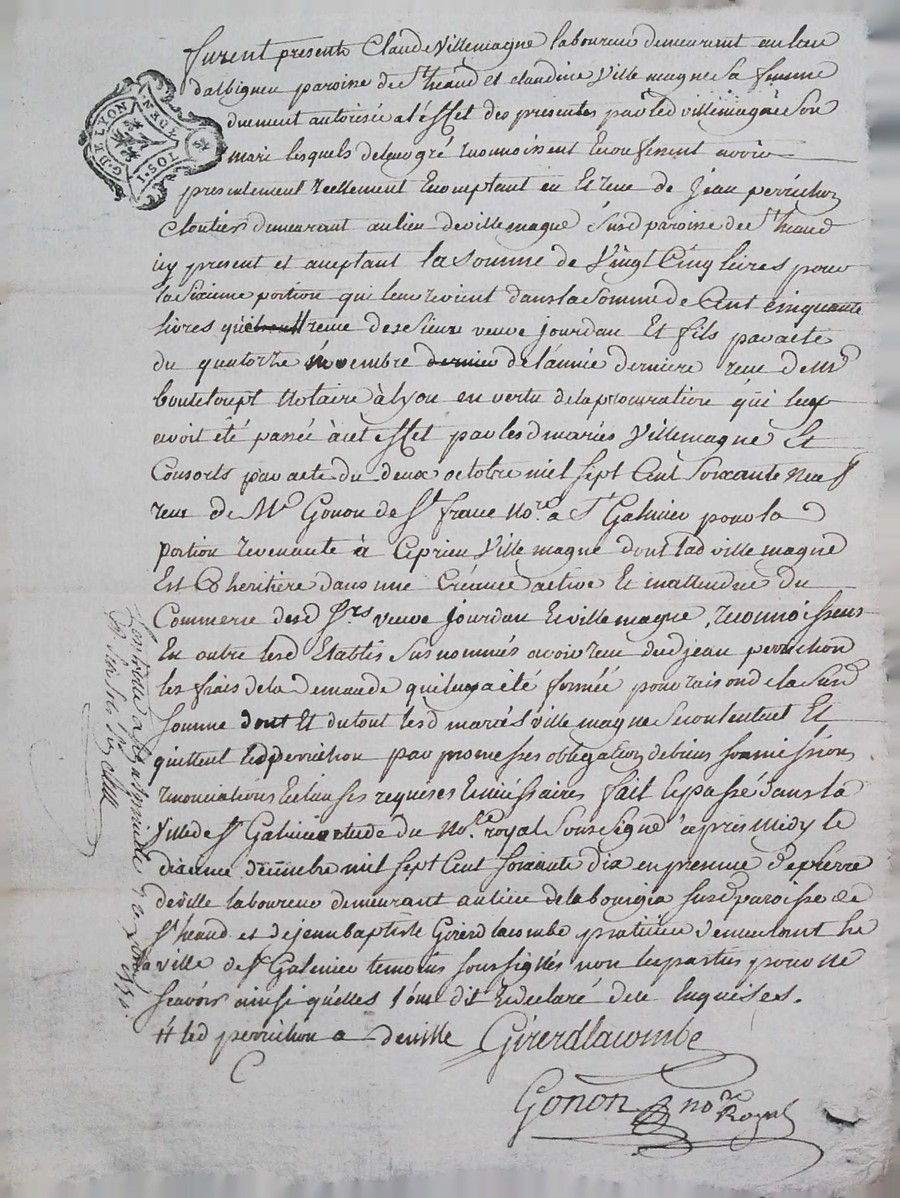 furent presents Claude Villemagne laboureur demeurant au lieu
d'albigneu paroisse de St heaud et claudine Ville magne sa femme
duement autorisée a l'effet des presentes par led villemagne son
mari lesquels de leur gré reconnoissent et confessent avoir
presentement reellement et comptant eu et receu de Jean perrichon
Cloutier demeurant au lieu de ville magne susd paroisse de St heaud
icy present et aceptant la somme de Vingt Cinq livres pour
la sixieme portion qui leur revient dans la somme de Cent cinquante
livres receue de sieur veuve jourdan Et fils par acte
du quatorze novembre dernier de l'année derniere receu de Mr
bouteloupt Notaire à Lyon en vertu de la procuration qui leur
avoit été passée à cet effet par lesd mariés Villemagne Et
Consorts par acte du deux octobre mil sept Cent soixante neuf
receu de Me Gonon de St franc Nore a St Galmier pour la
portion revenante à Ciprien Ville magne dont lad ville magne
Est Coheritiere dans une Créance active Et inattendue du
Commerce desd Srs veuve jourdan et ville magne, reconnoissent
En outre lesd Etablis susnommés avoir receu dud jean perrichon
les frais de la demande qui luy a été formée pour raison de la susd
somme dont Et du tout lesd mariés ville magne se contentent Et
quittent led perrichon par promesses obligation de biens soumissions
renonciations et clauses requises et necessaires fait et passé dans la
Ville de St Galmier etude du Nore royal soussigné apres Midy le
dixieme décembre mil sept Cent soixante dix en presence de pierre
deville laboureur demeurant au lieu de la bourgia susd paroisse de
St heaud et de jean baptiste Girerd lacombe praticien demeurant
la ville de St Galmier temoins soussignés non les parties pour ne
scavoir ainsi qu'elles l'ont dit et declaré de ce Enquises.
# led perrichon a deville Girerdlacombe
Gonon nore
Royal
G. DE LYON
1. SOL